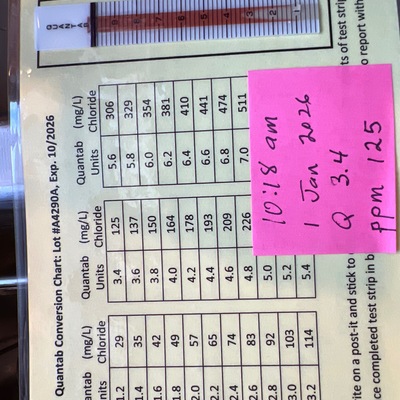 QUANTAB
9 8 7 6 5 4 3 2 1
Quantab Conversion Chart: Lot #A4290A, Exp. 10/2026
Quantab Units (mg/L) Chloride
1.2 29
1.4 35
1.6 42
1.8 49
2.0 57
2.2 65
2.4 74
2.6 83
2.8 92
3.0 103
3.2 114
Quantab Units (mg/L) Chloride
3.4 125
3.6 137
3.8 150
4.0 164
4.2 178
4.4 193
4.6 209
4.8 226
5.0
5.2
5.4
Quantab Units (mg/L) Chloride
5.6 306
5.8 329
6.0 354
6.2 381
6.4 410
6.6 441
6.8 474
7.0 511
10:18 am
1 Jan 2026
Q 3.4
ppm 125
ts of test strip
ite on a post-it and stick to
o report with
ce completed test strip in b